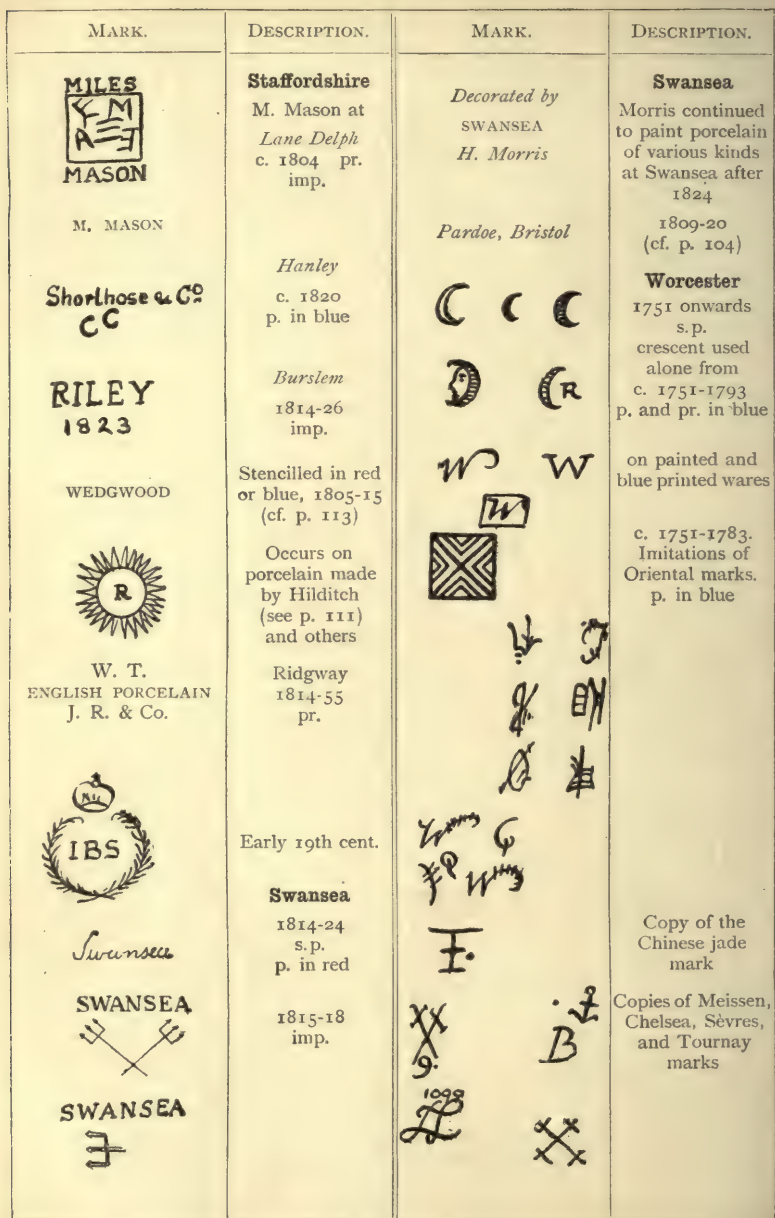 MARK.
DESCRIPTION.
MILES
MASON
Staffordshire
M. Mason at
Lane Delph
c. 1804 pr.
imp.
M. MASON
Hanley
Shorthose & Co
CC
c. 1820
p. in blue
RILEY
1823
Burslem
1814-26
imp.
WEDGWOOD
Stencilled in red
or blue, 1805-15
(cf. p. 113)
R
Occurs on
porcelain made
by Hilditch
(see p. 111)
and others
W. T.
ENGLISH PORCELAIN
J. R. & Co.
Ridgway
1814-55
pr.
IBS
Early 19th cent.
Swansea
Swansea
1814-24
s.p.
p. in red
SWANSEA
1815-18
imp.
SWANSEA
MARK.
DESCRIPTION.
Decorated by
SWANSEA
H. Morris
Swansea
Morris continued
to paint porcelain
of various kinds
at Swansea after
1824
Pardoe, Bristol
1809-20
(cf. p. 104)
Worcester
1751 onwards
s.p.
crescent used
alone from
c. 1751-1793
p. and pr. in blue
R
W W
W
on painted and
blue printed wares
c. 1751-1783.
Imitations of
Oriental marks.
p. in blue
Copy of the
Chinese jade
mark
9.
B
Copies of Meissen,
Chelsea, Sèvres,
and Tournay
marks